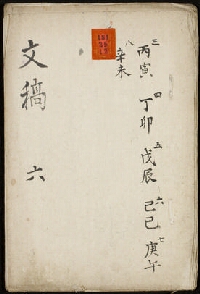 三 丙寅 四 丁卯 五 戊辰 六 己巳 七 庚午
八 辛未
文稿 六